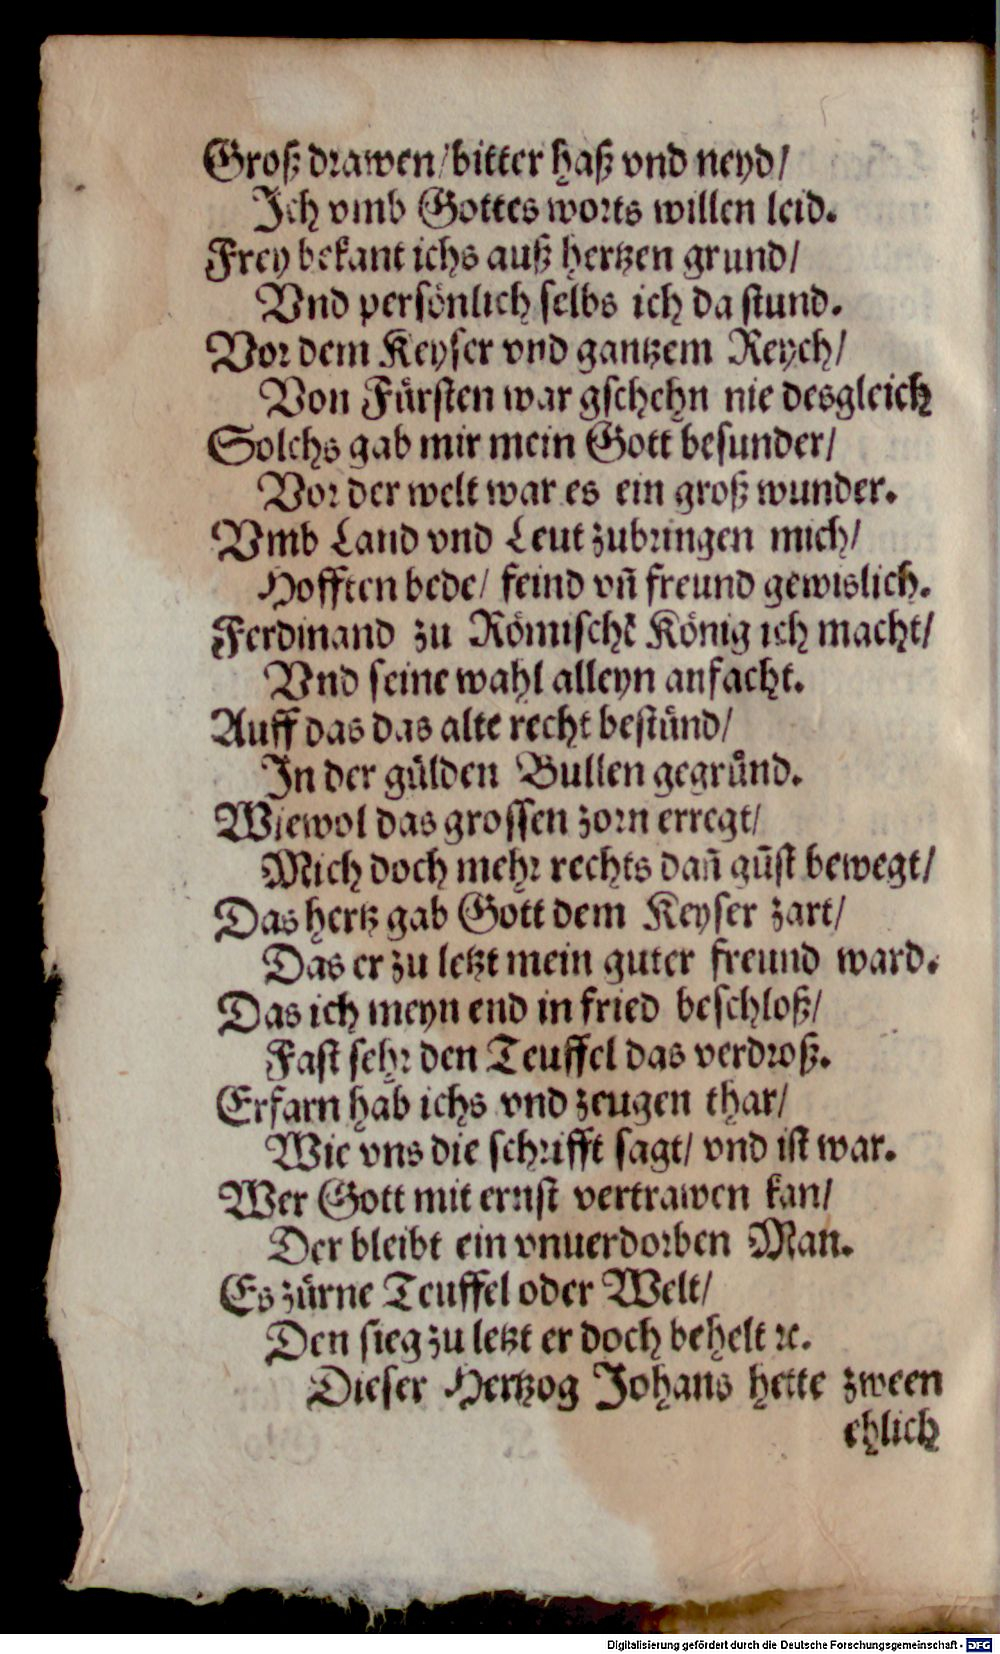 Groß drawen/ bitter haß vnd neyd/
Ich vmb Gottes worts willen leid.
Frey bekant ichs auß hertzen grund/
Vnd persönlich selbs ich da stund.
Vor dem Keyser vnd gantzem Reych/
Von Fürsten war gschehn nie desgleich
Solchs gab mir mein Gott besunder/
Vor der welt war es ein groß wunder.
Vmb Land vnd Leut zubringen mich/
Hofften bede/ feind vñ freund gewislich.
Ferdinand zu Römischẽ König ich macht/
Vnd seine wahl alleyn anfacht.
Auff das das alte recht bestünd/
In der gülden Bullen gegründ.
Wiewol das grossen zorn erregt/
Mich doch mehr rechts dañ gũst bewegt/
Das hertz gab Gott dem Keyser zart/
Das er zu letzt mein guter freund ward.
Das ich meyn end in fried beschloß/
Fast sehr den Teuffel das verdroß.
Erfarn hab ichs vnd zeugen thar/
Wie vns die schrifft sagt/ vnd ist war.
Wer Gott mit ernst vertrawen kan/
Der bleibt ein vnuerdorben Man.
Es zürne Teuffel oder Welt/
Den sieg zu letzt er doch behelt ꝛc.
Dieser Hertzog Johans hette zween
ehlich
Digitalisierung gefördert durch die Deutsche Forschungsgemeinschaft - DFG